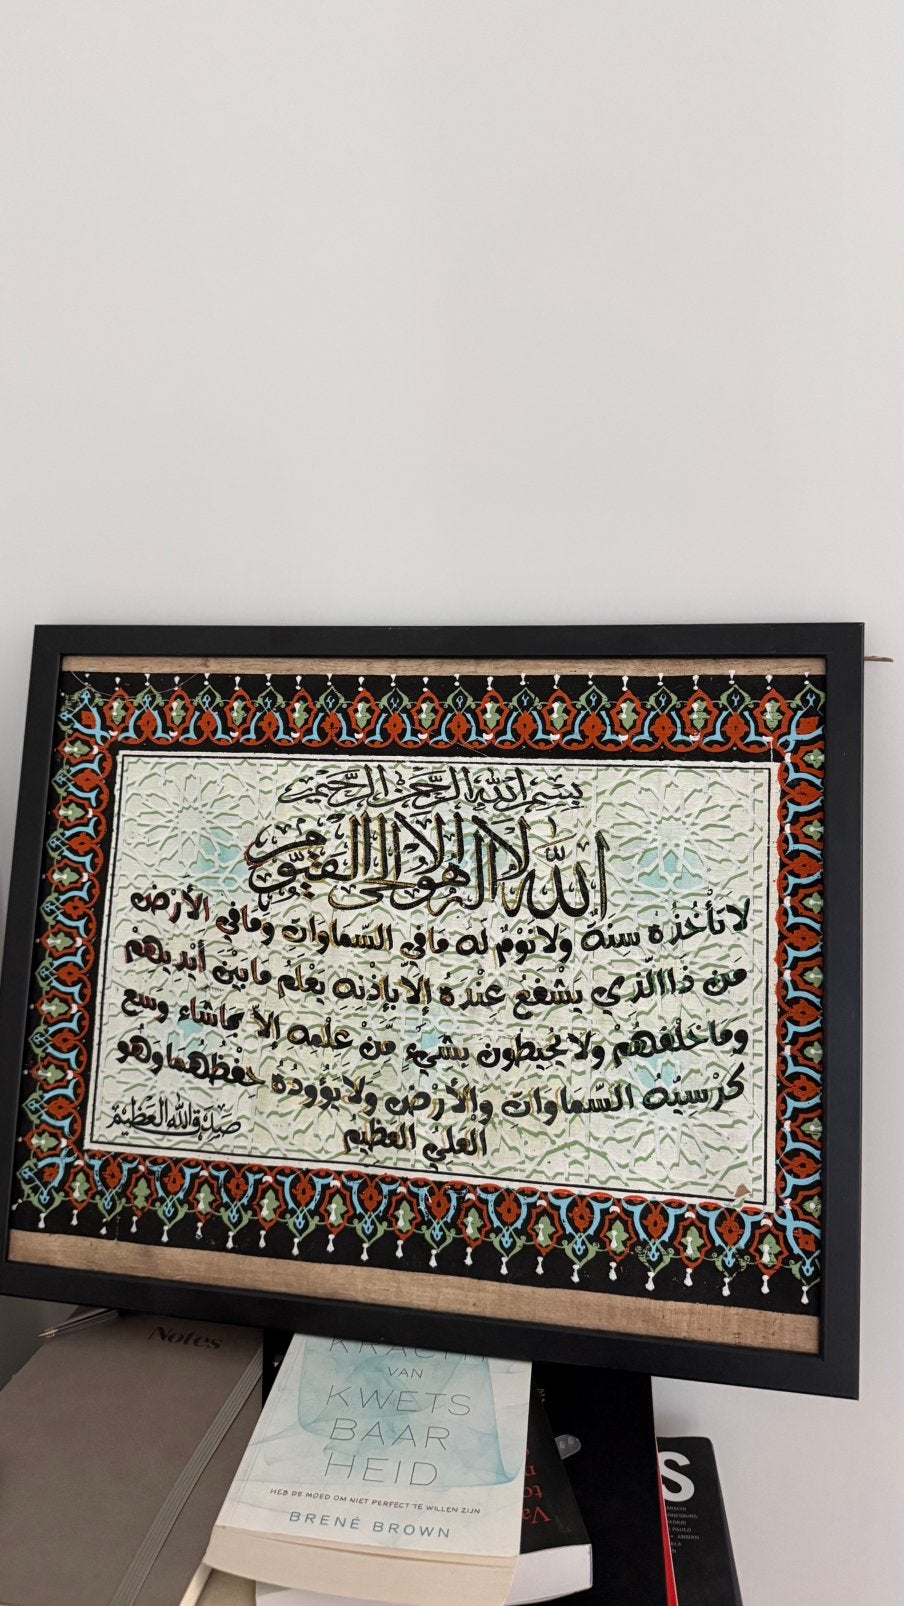 بِسْمِ اللهِ الرَّحْمٰنِ الرَّحِيْمِ
اللّٰهُ لَا إِلٰهَ إِلَّا هُوَ الْحَيُّ الْقَيُّوْمُ
لا تَأْخُذُهُ سِنَةٌ وَلا نَوْمٌ لَّهُ مَا فِي السَّماوَاتِ وَمَا فِي الأَرْضِ
مَن ذَا الَّذِي يَشْفَعُ عِنْدَهُ إِلاَّ بِإِذْنِهِ يَعْلَمُ مَا بَيْنَ أَيْدِيهِمْ
وَمَا خَلْفَهُمْ وَلا يُحِيطُونَ بِشَيْءٍ مِّنْ عِلْمِهِ إِلاَّ بِمَا شَاءَ وَسِعَ
كُرْسِيُّهُ السَّمَاوَاتِ وَالأَرْضَ وَلا يَؤُودُهُ حِفْظُهُمَا وَهُوَ
العَلِيُّ العَظِيمُ
صَدَقَ اللهُ العَظِيْمُ
Notes
KRACHT
VAN
KWETS
BAAR
HEID
HEB DE MOED OM NIET PERFECT TE WILLEN ZIJN
BRENÉ BROWN
Va
S